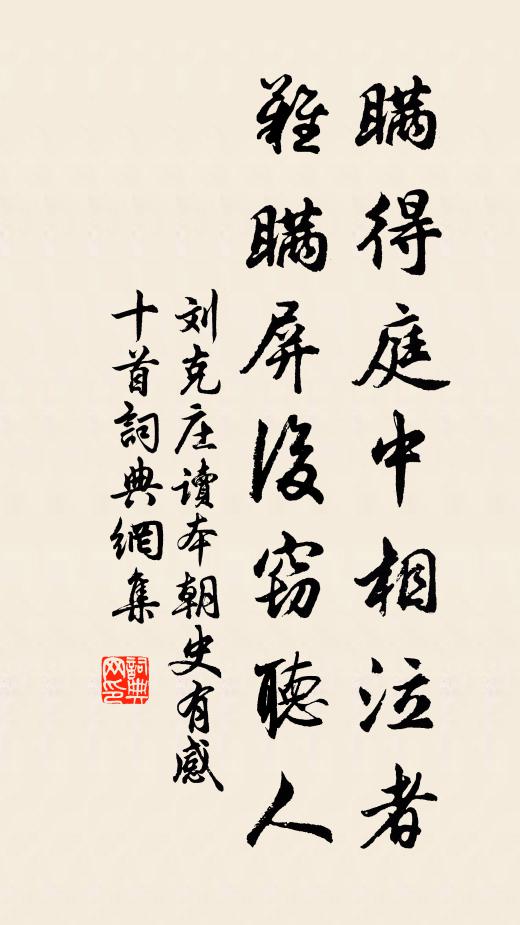 瞞得庭中相泣者
難瞞屏後窃聽人
刘克庄讀本朝史有感
十首詞典網集
詞典网印